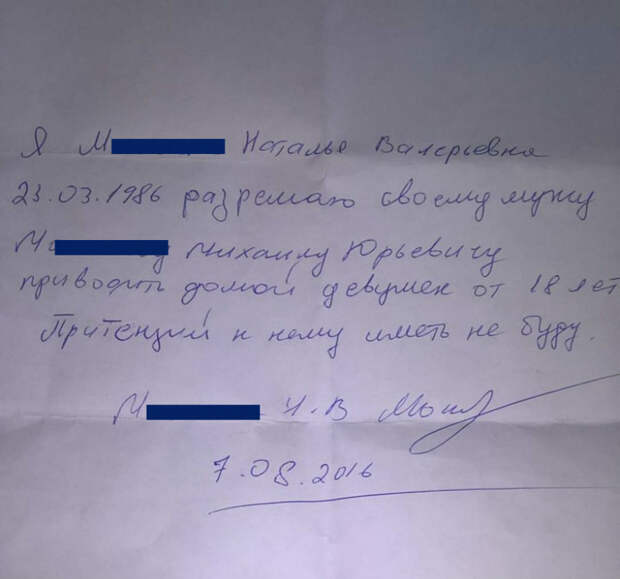 Я М Наталья Валерьевна
23.03.1986 разрешаю своему мужу
М Михаилу Юрьевичу
приводить домой девушек от 18 лет
Притензий к нему иметь не буду.
М Н.В
7.08.2016